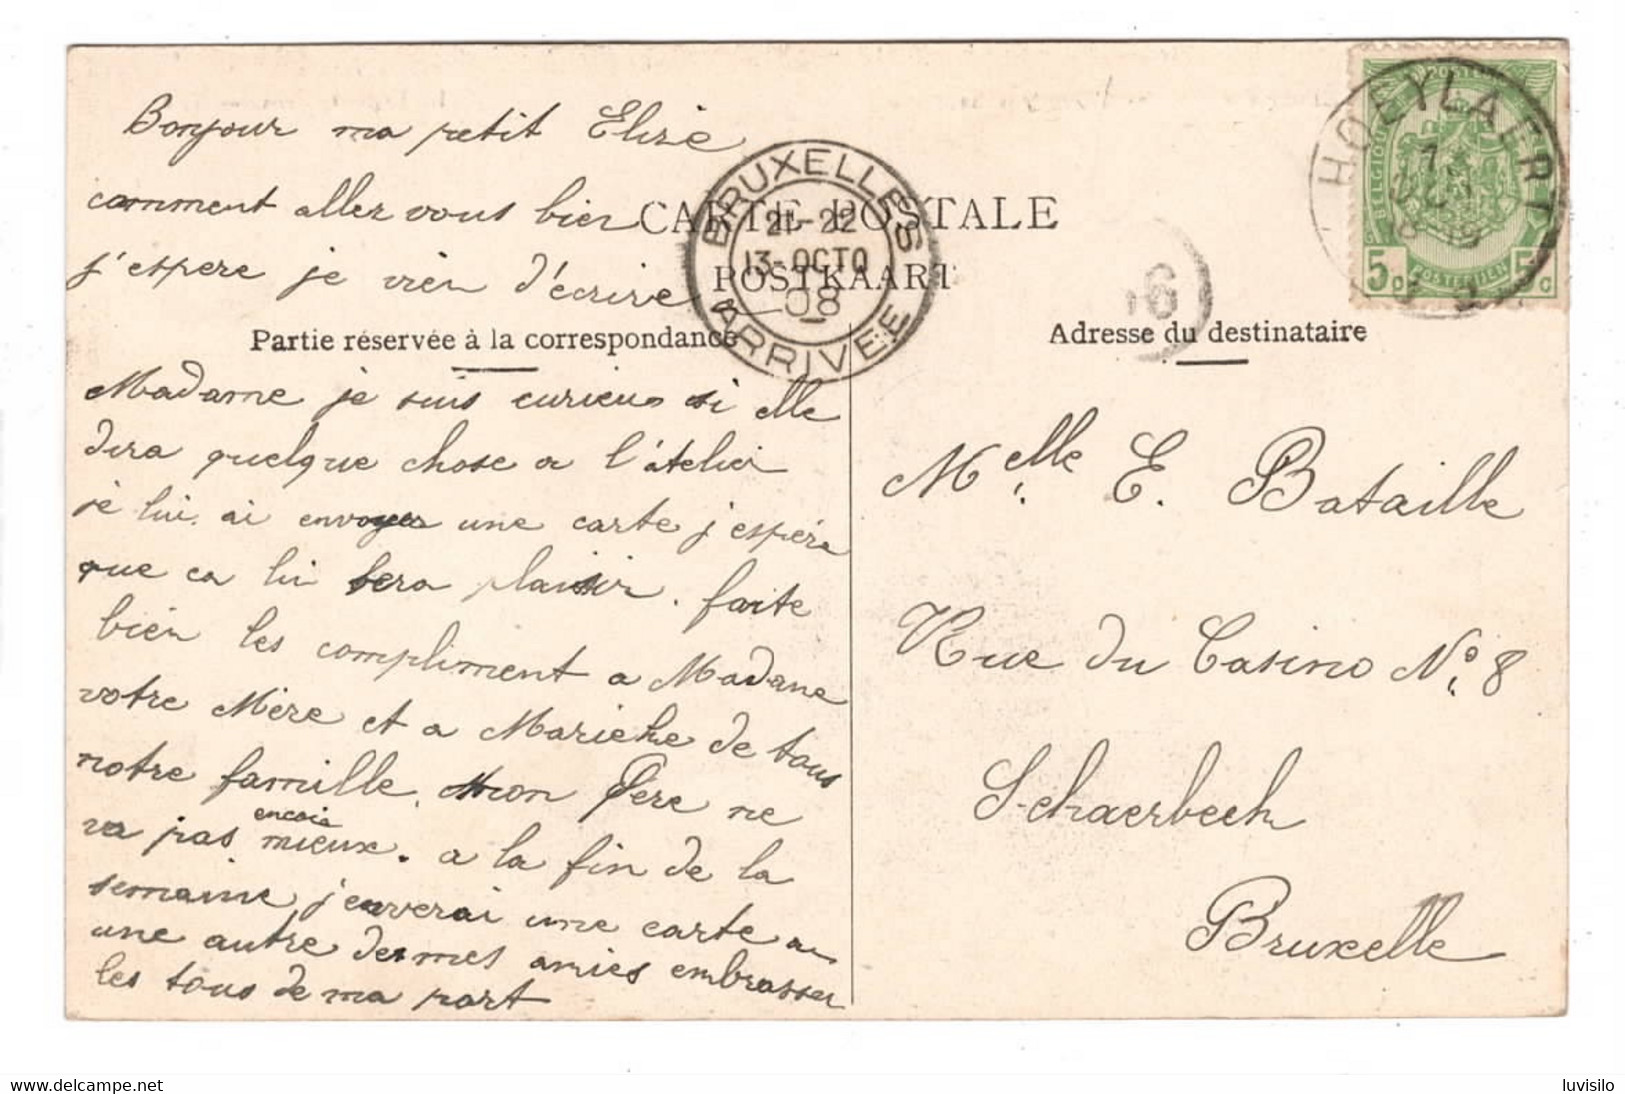 Bonjour ma petit Elise
comment allez vous bien
j'espere je vien d'écrire
CARTE POSTALE
POSTKAART
Partie réservée à la correspondance
Madame je suis curieus si elle
dira quelque chose a l'atelier
je lui ai envoyer une carte j'espére
que ca lui sera plaisir. faite
bien les compliment a Madame
votre Mère et a Marieke de tous
notre famille. Mon Père ne
va pas encore mieux. a la fin de la
semaine j'enverai une carte a
une autre de mes amies embrasser
les tous de ma part
BRUXELLES
21-22
13-OCTO
08
ARRIVEE
6
HOEYLAERT
BELGIQUE
5c POSTERIJEN 5c
Adresse du destinataire
Melle E. Bataille
Rue du Casino No 8
Schaerbeek
Bruxelle
www.delcampe.net
luvisilo